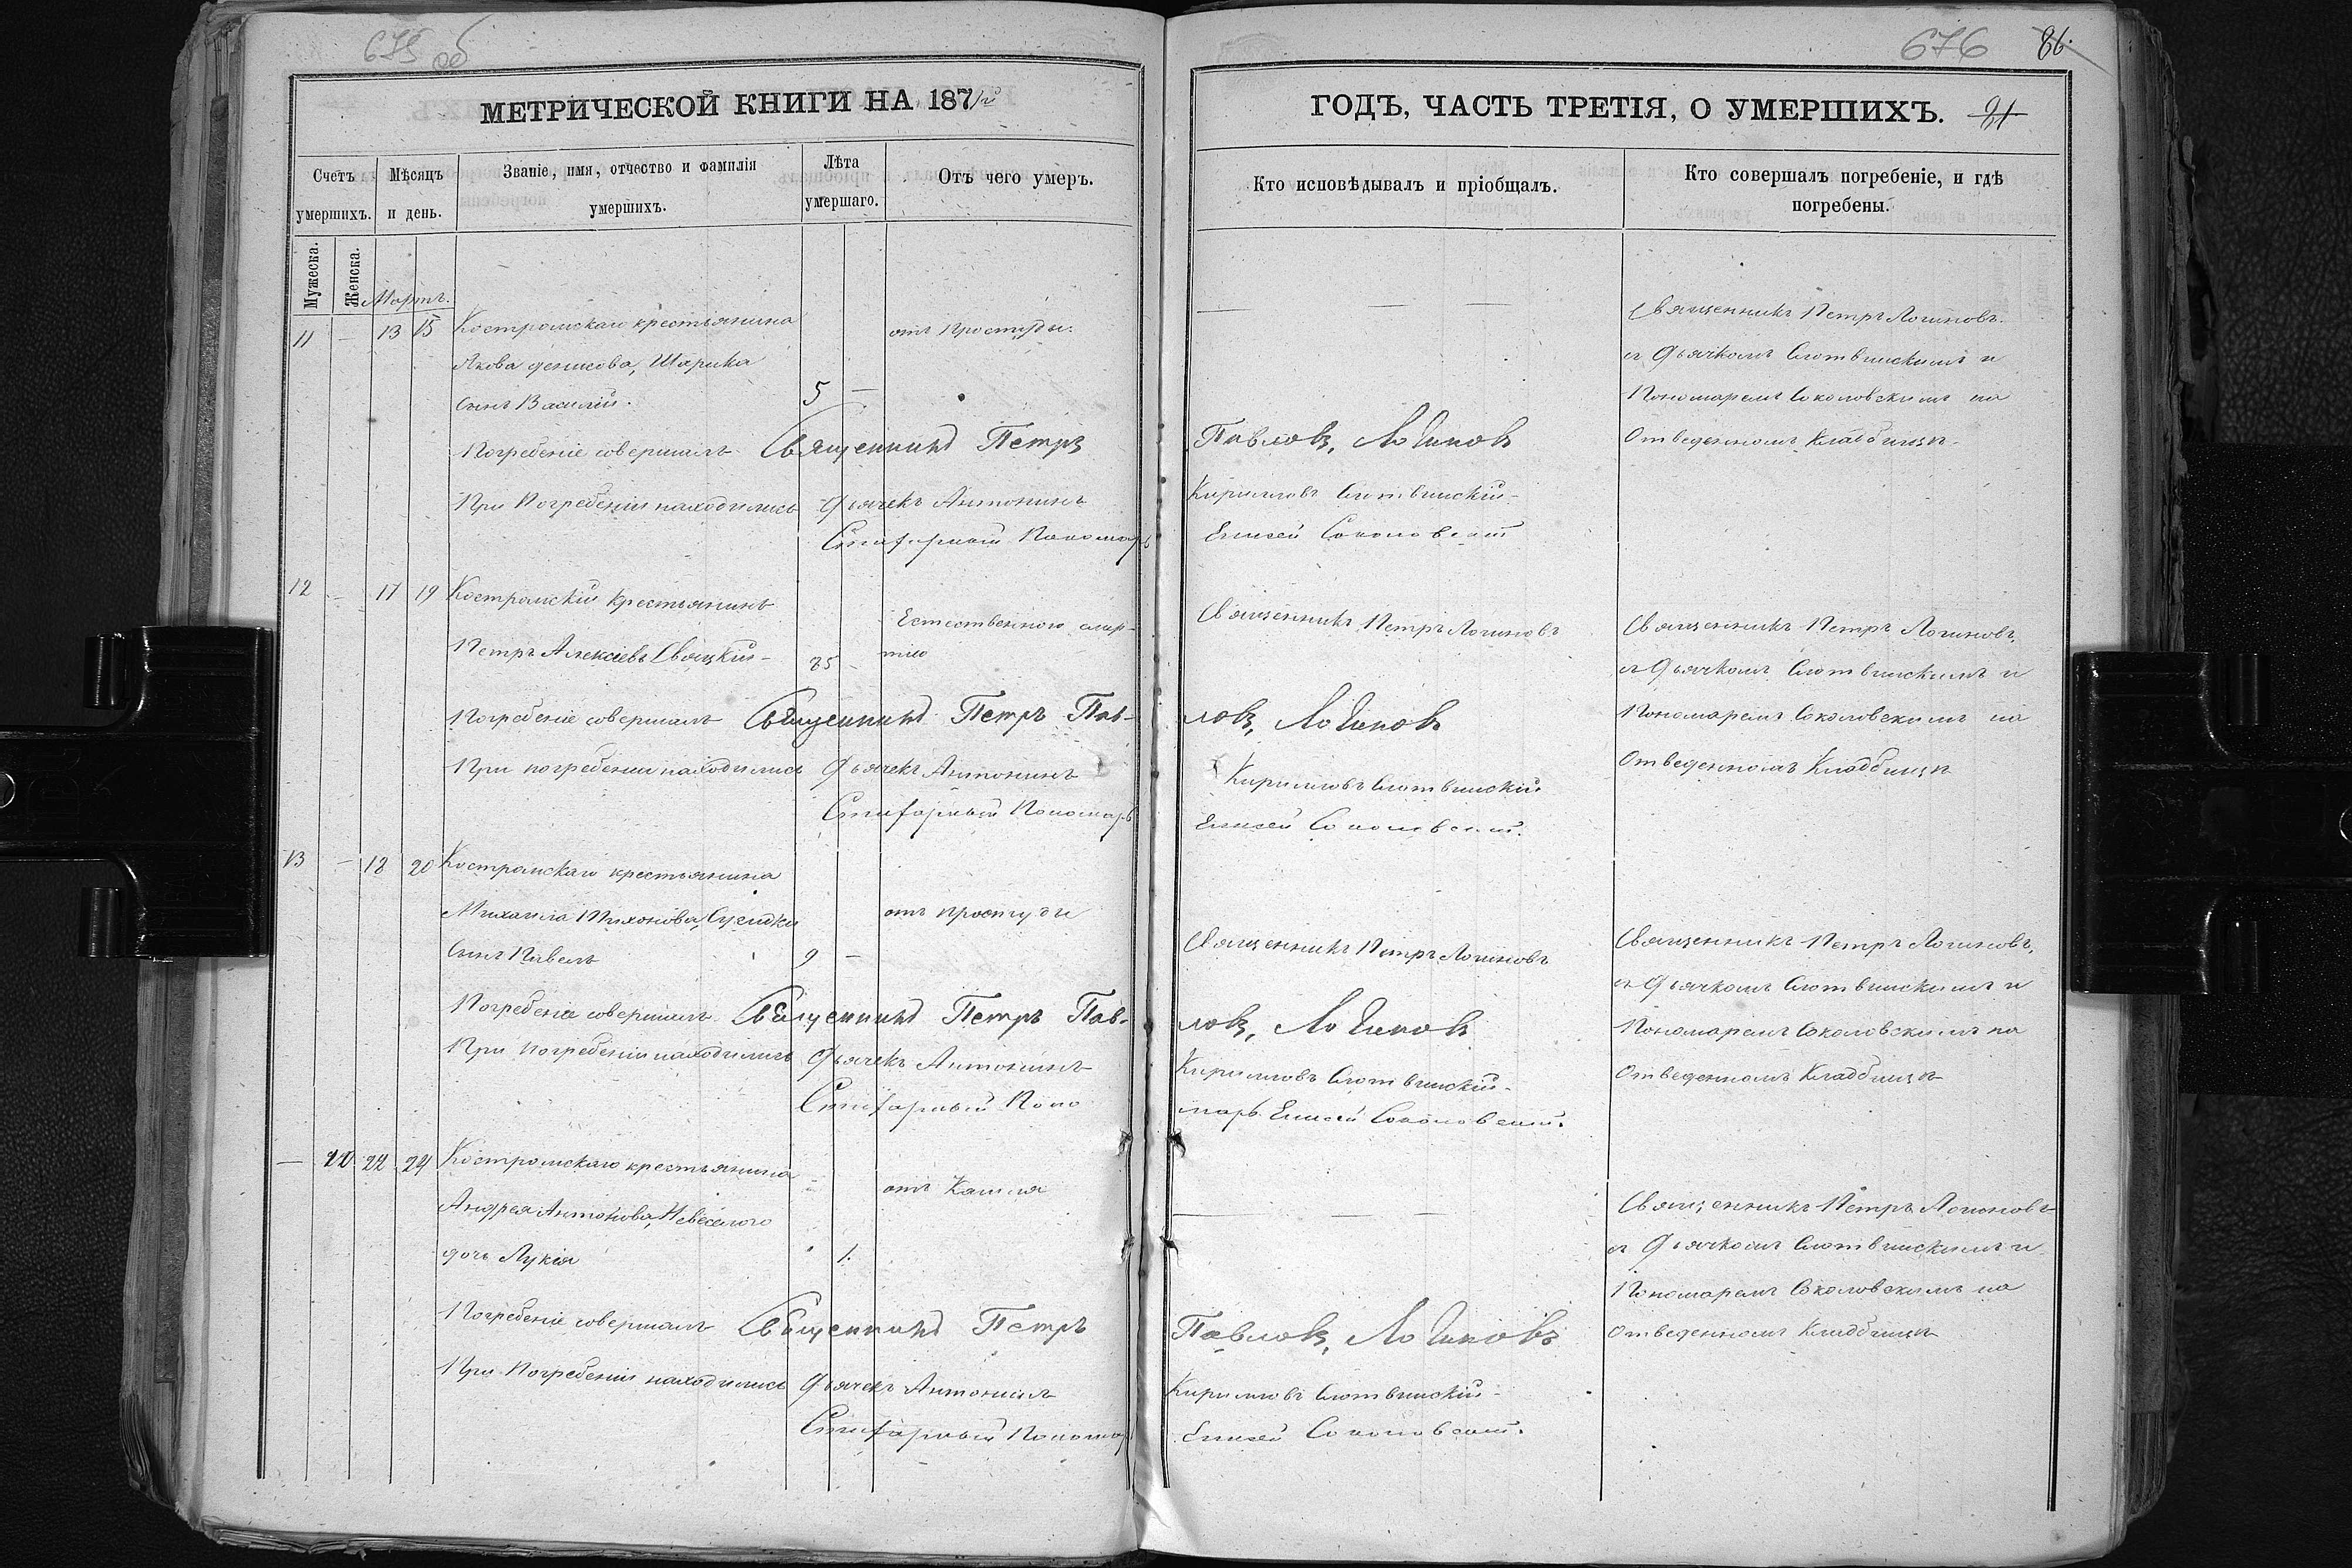 675 об
МЕТРИЧЕСКОЙ КНИГИ НА 187
Счетъ умершихъ.
Мѣсяцъ и день.
Званіе, имя, отчество и фамилія умершихъ.
Лѣта умершаго.
Отъ чего умеръ.
Мужеска.
Женска.
Мартъ.
11 — 13 15 Костромскаго крестьянина
отъ простуды.
Якова Денисова, Шарика
сынъ Василій. 5 —
Погребеніе совершалъ Священникъ Петръ
При Погребеніи находились Дьячекъ Антонинъ
Пономарь
12 — 17 19 Костромскій крестьянинъ
Естественною смер-
Петръ Алексіевъ Свяцкій — 85 — тію
Погребеніе совершалъ Священникъ Петръ Пав-
При погребеніи находились Дьячекъ Антонинъ
Пономарь
13 — 18 20 Костромскаго крестьянина
Михаила Тихонова,
отъ простуды
сынъ Павелъ 9 —
Погребеніе совершалъ Священникъ Петръ Пав-
При погребеніи находились Дьячекъ Антонинъ
Поно
— 22 24 Костромскаго крестьянина
отъ Кашля
Андрея Антонова, Невеселого
дочь Лукія 1.
Погребеніе совершалъ Священникъ Петръ
При Погребеніи находились Дьячекъ Антонинъ
Пономар
676 86.
ГОДЪ, ЧАСТЬ ТРЕТІЯ, О УМЕРШИХЪ.
Кто исповѣдывалъ и пріобщалъ.
Кто совершалъ погребеніе, и гдѣ погребены.
— — —
Священникъ Петръ Логиновъ.
съ Дьячкомъ Слотвинскимъ и
Пономаремъ Соколовскимъ на
Отведенномъ Кладбищѣ.
Павловъ, Логиновъ
Кирилловъ Слотвинскій —
Елисей Соколовскій
Священникъ Петръ Логиновъ
Священникъ Петръ Логиновъ,
съ Дьячкомъ Слотвинскимъ и
Пономаремъ Соколовскимъ на
Отведенномъ Кладбищѣ
ловъ, Логиновъ
Кирилловъ Слотвинскій
Елисей Соколовскій.
Священникъ Петръ Логиновъ
Священникъ Петръ Логиновъ,
съ Дьячкомъ Слотвинскимъ и
Пономаремъ Соколовскимъ на
Отведенномъ Кладбищѣ
ловъ, Логиновъ
Кирилловъ Слотвинскій —
марь Елисей Соколовскій.
— — —
Священникъ Петръ Логиновъ
съ Дьячкомъ Слотвинскимъ и
Пономаремъ Соколовскимъ на
Отведенномъ Кладбищѣ
Павловъ, Логиновъ
Кирилловъ Слотвинскій —
Елисей Соколовскій.